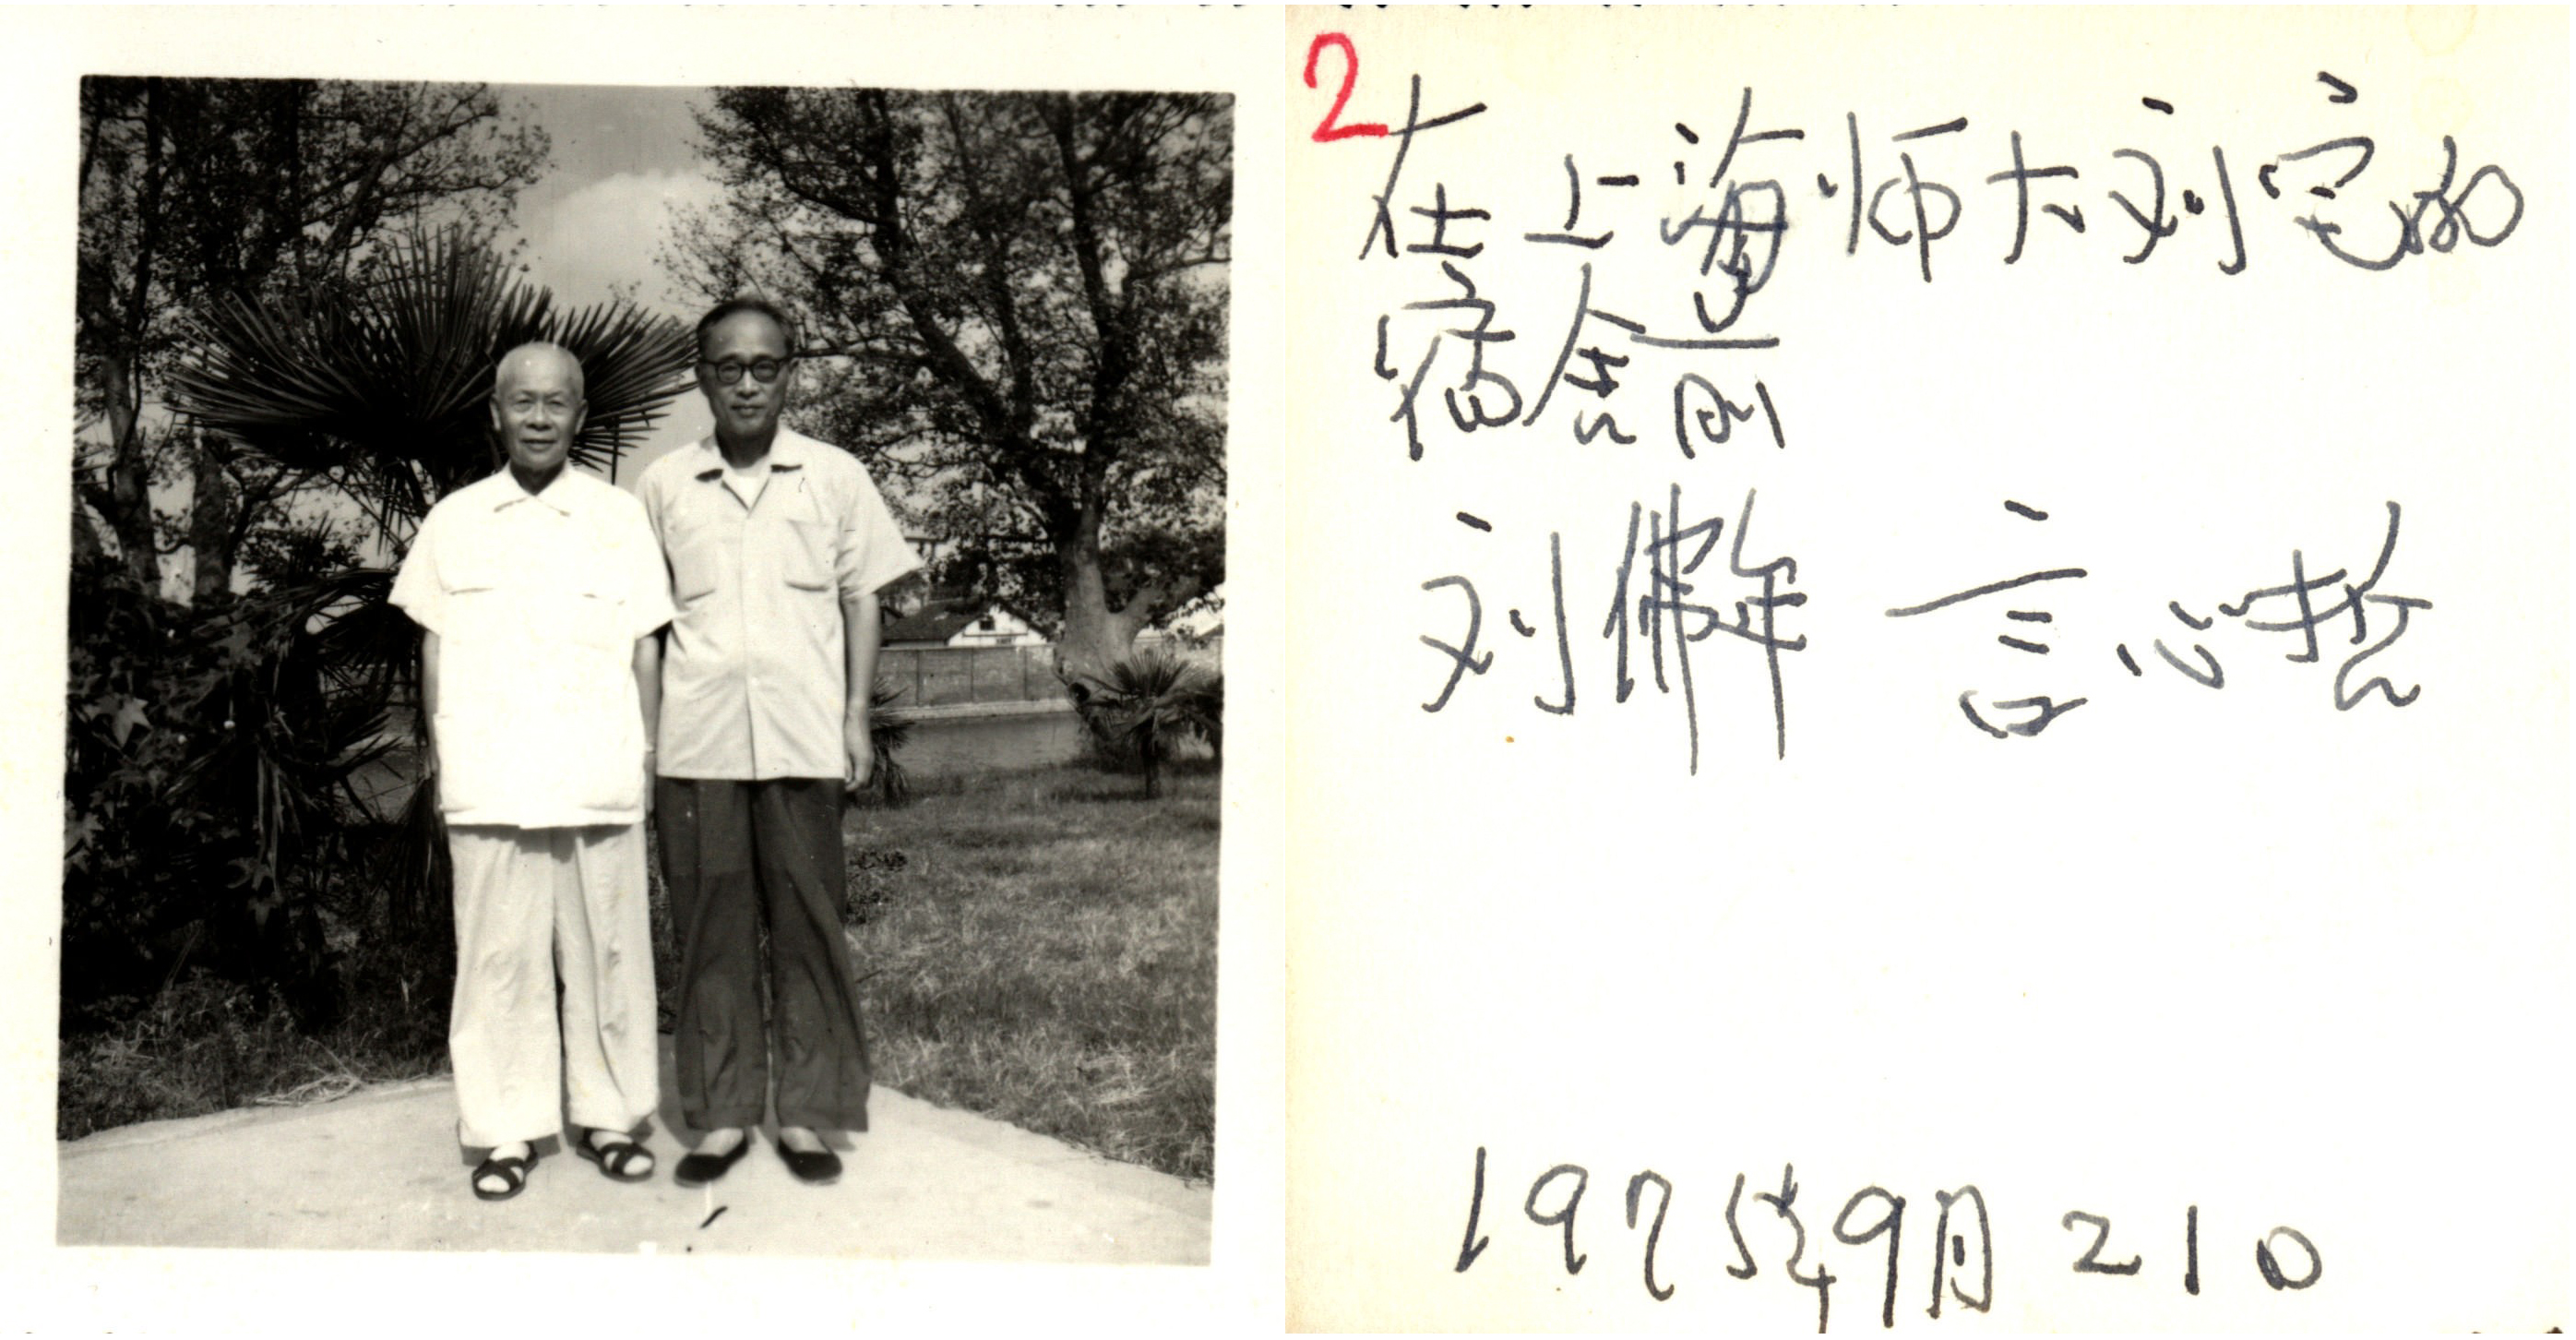 2
在上海师大刘宅的
宿舍前
刘佛年 言心哲
1975年9月21日